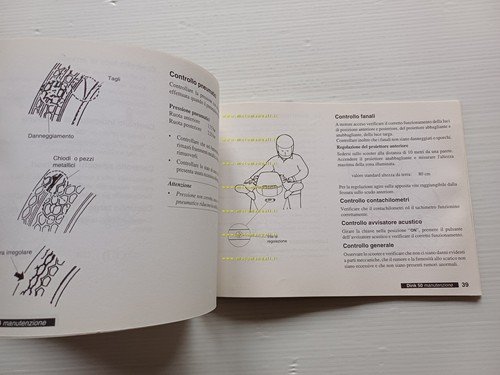 Tagli
Danneggiamento
Chiodi o pezzi
metallici
irregolare
manutenzione
Controllo pneumatici
Controllare la pressione
effettuata quando
Pressione pneumatici
Ruota anteriore
Ruota posteriore
Controllare
Controllare lo stato
presenta usura
Attenzione
Pressione non
pneumatico
www.motomanuali.it
Vite di
regolazione
Controllo fanali
A motore acceso verificare il corretto funzionamento della luci
di posizione anteriore e posteriore, del proiettore abbagliante e
anabbagliante, della luce targa.
Controllare inoltre che i fanali non siano danneggiati o sporchi.
Regolazione del proiettore anteriore
Sedersi sullo scooter alla distanza di 10 metri da una parete.
Accendere il proiettore anabbagliante e misurare l'altezza
massima della zona illuminata.
valore standard altezza da terra: 80 cm
Per la regolazione agire sulla apposita vite raggiungibile dalla
fessura sullo scudo anteriore.
Controllo contachilometri
Verificare che il contachilometri ed il tachimetro funzionino
correttamente.
Controllo avvisatore acustico
Girare la chiave nella posizione "ON", premere il pulsante
dell'avvisatore acustico e verificare il corretto funzionamento.
Controllo generale
Osservare lo scooter e verificare che non ci siano danni evidenti
a parti meccaniche, che il rumore e la fumosità allo scarico non
siano eccessive e che non siano presenti rumori anormali.
Dink 50 manutenzione
39